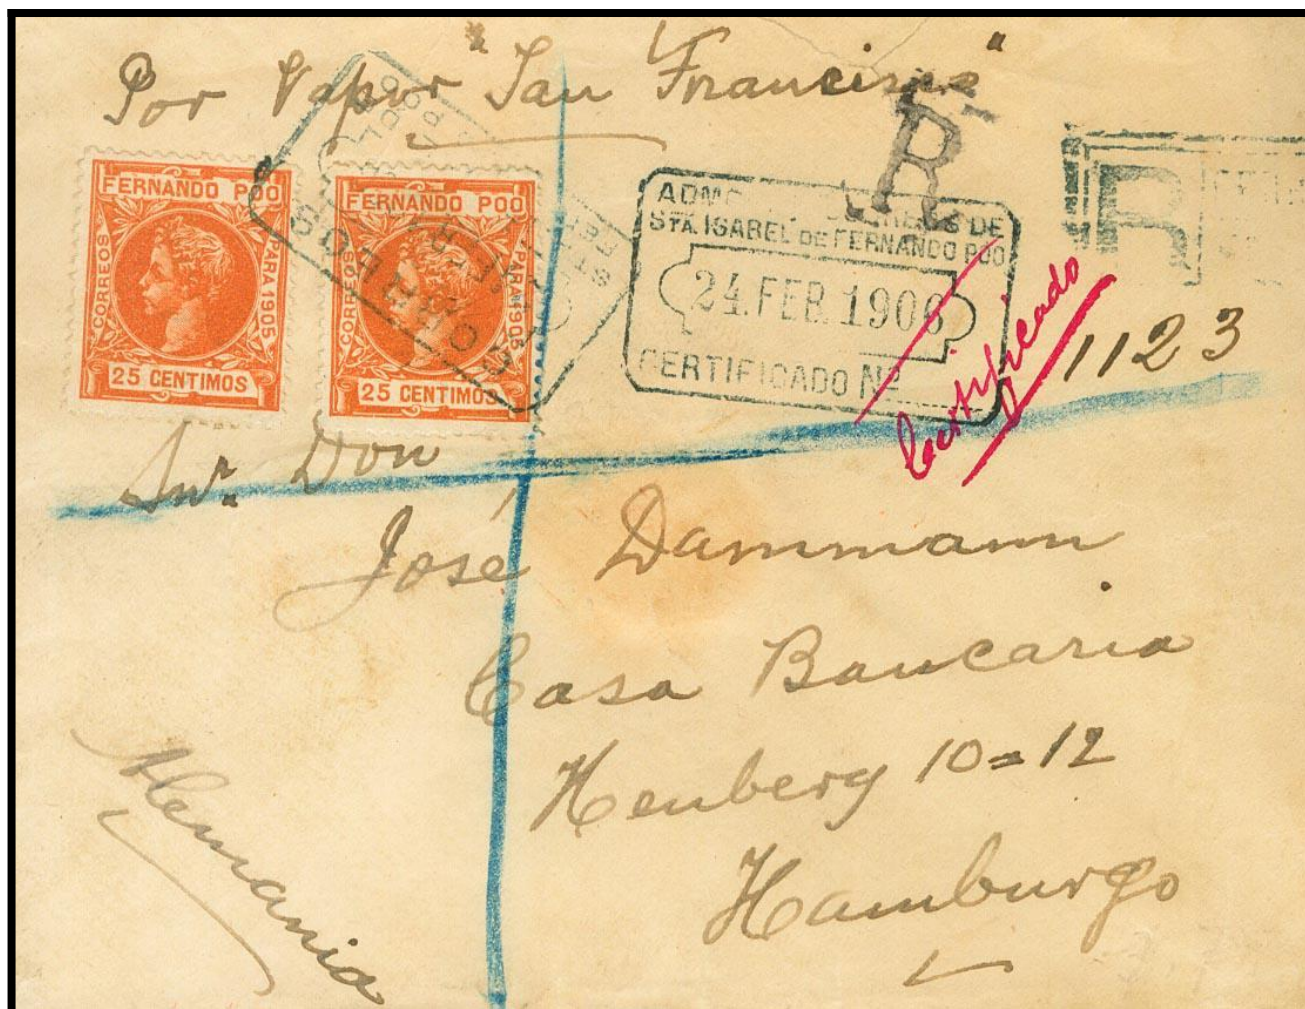 Por Vapor "San Francisco"
FERNANDO POO
CORREOS
PARA 1905
25 CENTIMOS
FERNANDO POO
CORREOS
PARA 1905
25 CENTIMOS
R
R
DE
STA. ISABEL DE FERNANDO POO
24.FEB.1906
CERTIFICADO Nº
Certificado
1123
Snr. Don
José Dammann
Casa Bancaria
Heuberg 10=12
Hamburgo
Alemania